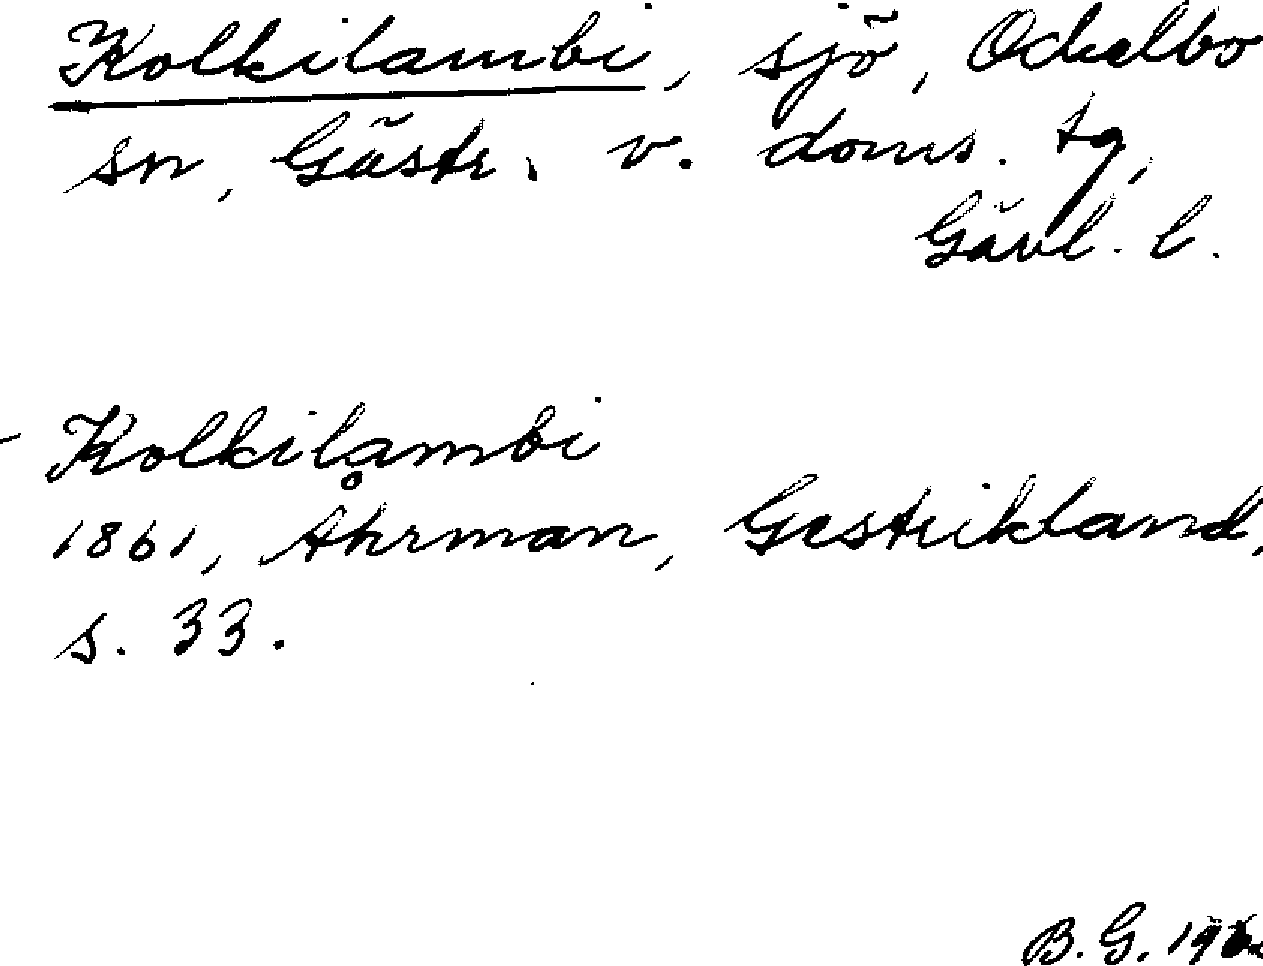 Kolkilambi, sjö, Ockelbo
sn, Gästr. v. doms. tg,
Gävl. l.
Kolkilambi
1861, Ahrman, Gestrikland,
s. 33.
B. G.